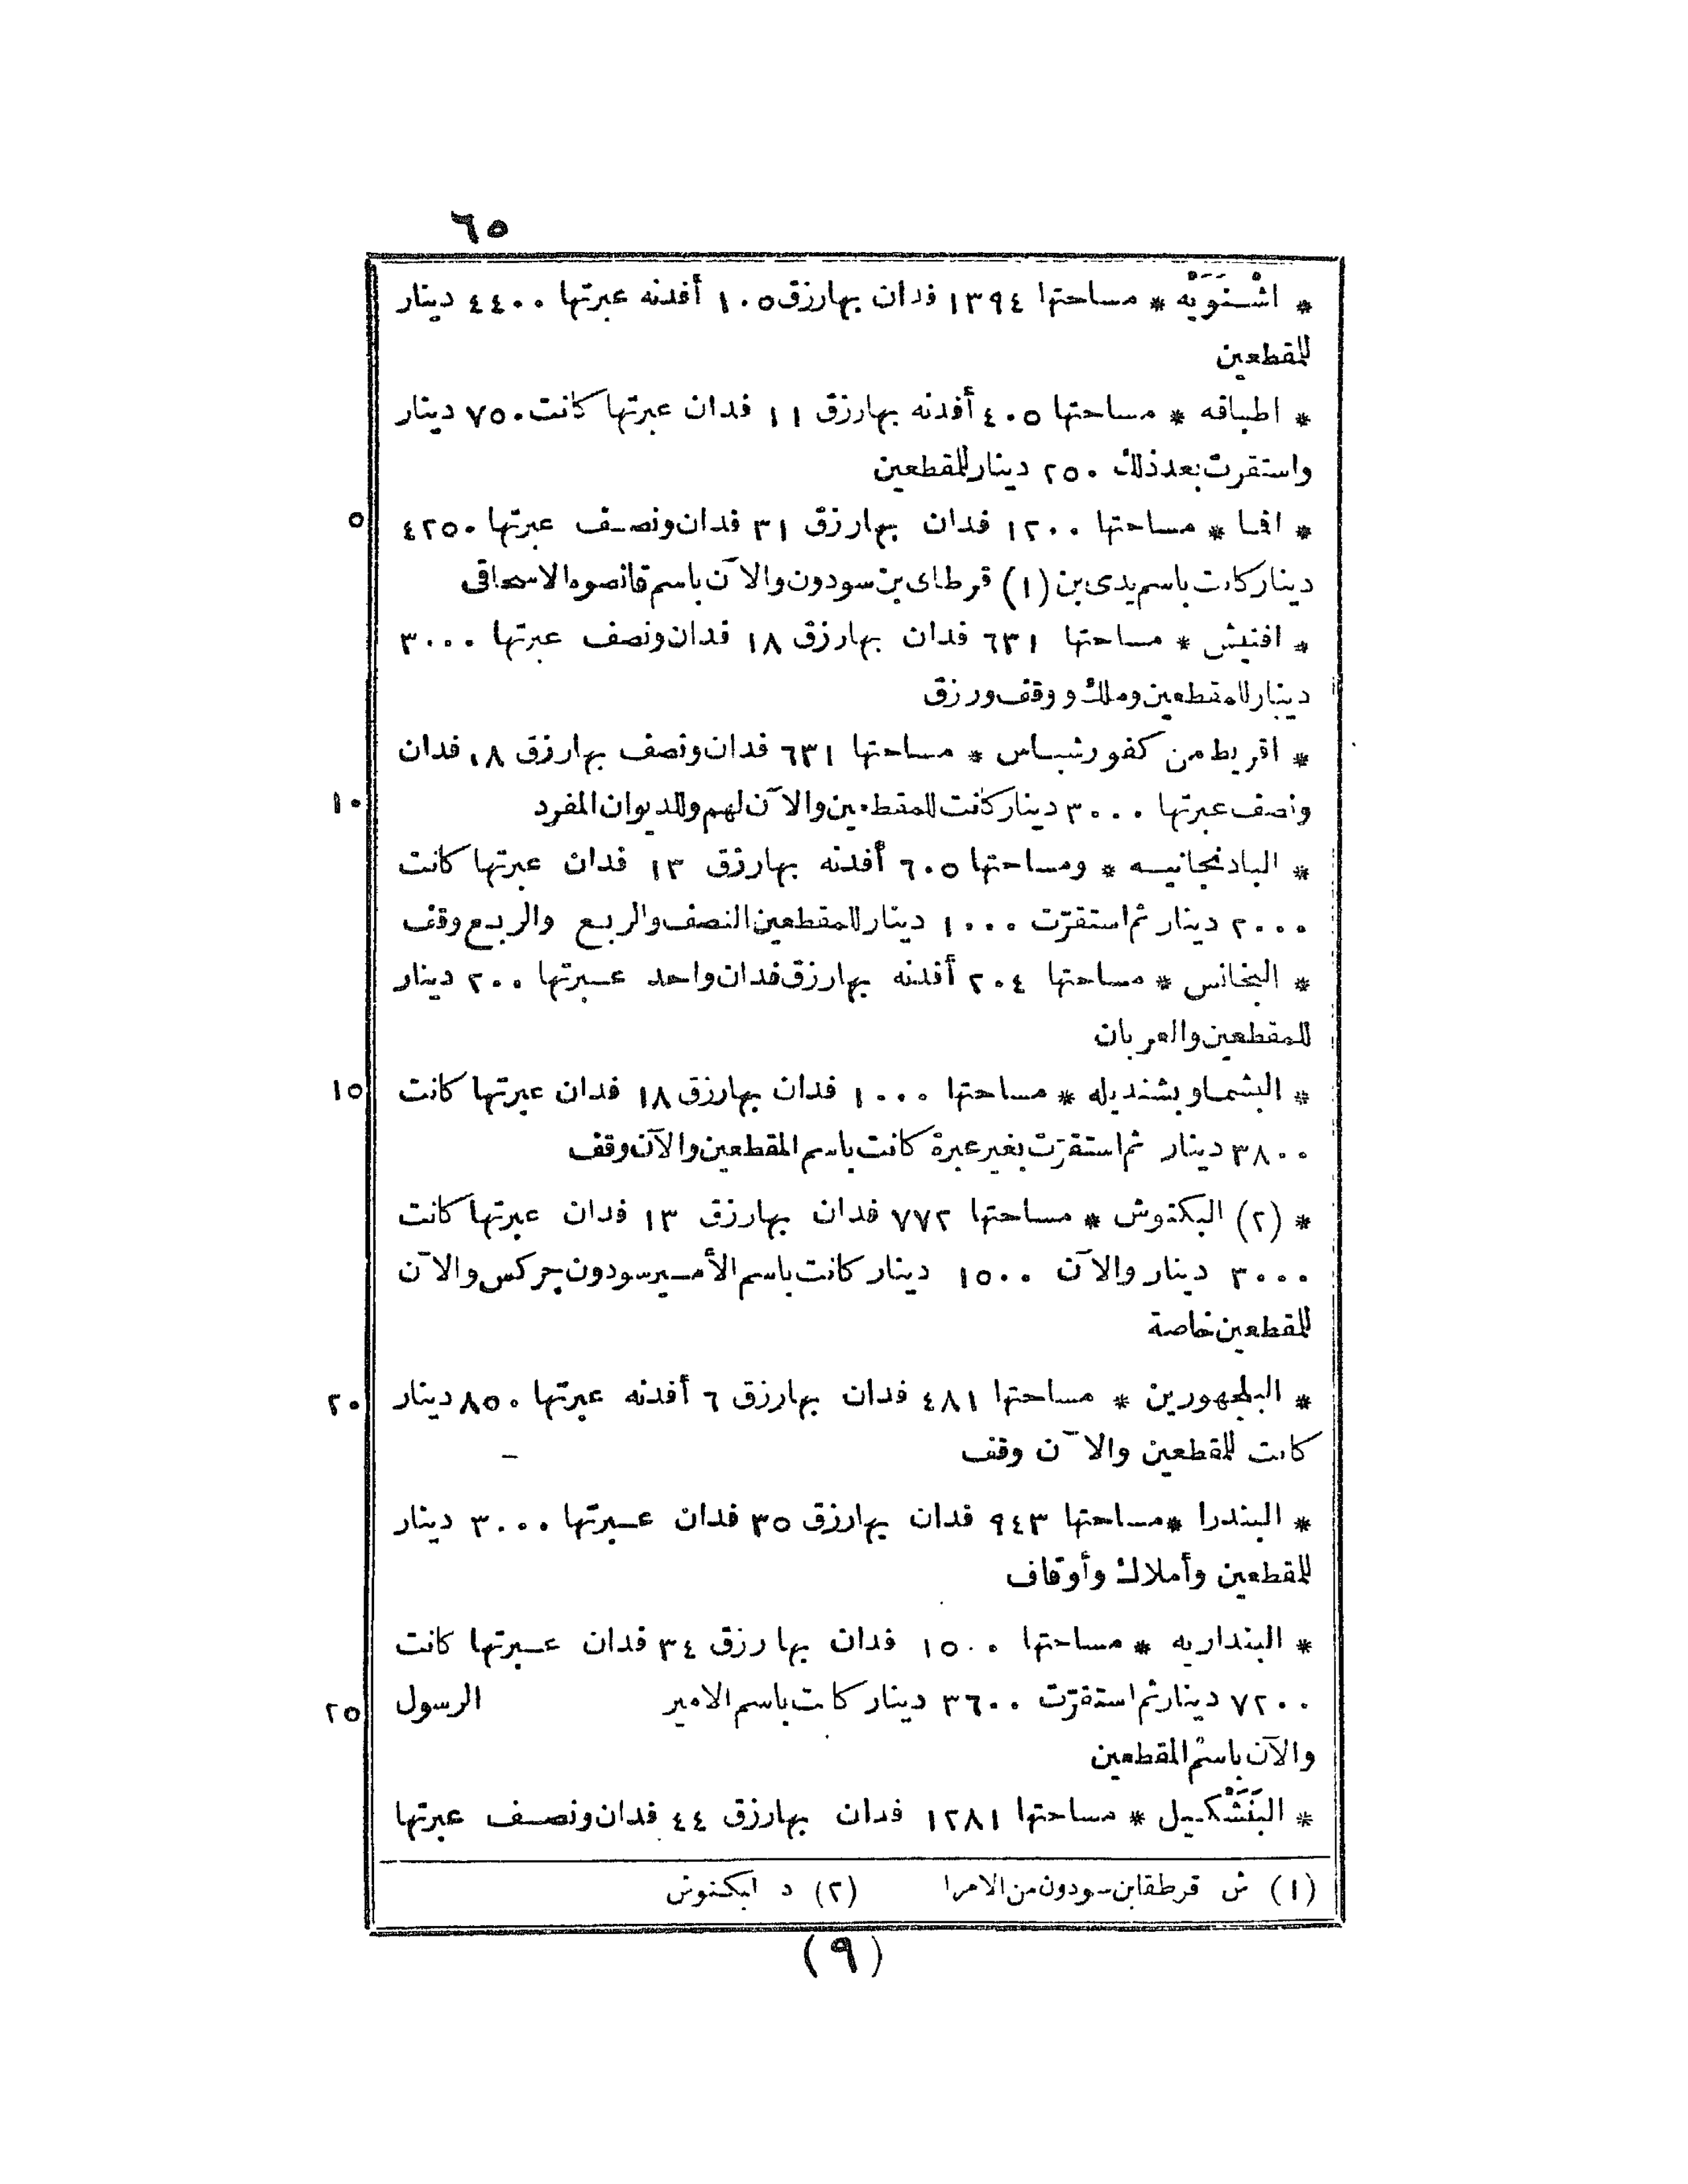 ٦٥
* اشْـنَوَيْه * مساحتها ١٣٩٤ فدان بها رزق ١٠٥ أفدنه عبرتها ٤٤٠٠ دينار
للمقطعين
* اطباقه * مساحتها ٤٠٥ أفدنه بها رزق ١١ فدان عبرتها كانت ٧٥٠ دينار
واستقرت بعد ذلك ٢٥٠ دينار للمقطعين
* افا * مساحتها ١٢٠٠ فدان بها رزق ٣١ فدان ونصف عبرتها ٤٢٥٠ ٥
دينار كانت باسم يدى بن (١) قرطاى بن سودون والآن باسم قانصوه الاسحاقى
* افنيش * مساحتها ٦٣١ فدان بها رزق ١٨ فدان ونصف عبرتها ٣٠٠٠
دينار للمقطعين وملك ووقف ورزق
* اقريط من كفور شباس * مساحتها ٦٣١ فدان ونصف بها رزق ١٨ فدان
ونصف عبرتها ٣٠٠٠ دينار كانت للمقطعين والآن لهم وللديوان المفرد ١٠
* البادنجانيه * ومساحتها ٦٠٥ أفدنه بها رزق ١٣ فدان عبرتها كانت
٢٠٠٠ دينار ثم استقرّت ١٠٠٠ دينار للمقطعين النصف والربع والربع وقف
* البخانس * مساحتها ٢٠٤ أفدنه بها رزق فدان واحد عبرتها ٢٠٠ دينار
للمقطعين والعربان
* البشما وبشنديله * مساحتها ١٠٠٠ فدان بها رزق ١٨ فدان عبرتها كانت ١٥
٣٨٠٠ دينار ثم استقرّت بغير عبرة كانت باسم المقطعين والآن وقف
* (٢) البكتوش * مساحتها ٧٧٢ فدان بها رزق ١٣ فدان عبرتها كانت
٣٠٠٠ دينار والآن ١٥٠٠ دينار كانت باسم الأمير سودون جركس والآن
للمقطعين خاصة
* البلجهورين * مساحتها ٤٨١ فدان بها رزق ٦ أفدنه عبرتها ٨٥٠ دينار ٢٠
كانت للمقطعين والآن وقف
* البندرا * مساحتها ٩٤٣ فدان بها رزق ٣٥ فدان عبرتها ٣٠٠٠ دينار
للمقطعين وأملاك وأوقاف
* البنداريه * مساحتها ١٥٠٠ فدان بها رزق ٣٤ فدان عبرتها كانت
٧٢٠٠ دينار ثم استقرّت ٣٦٠٠ دينار كانت باسم الامير الرسول ٢٥
والآن باسم المقطعين
* البَنَشْكيل * مساحتها ١٢٨١ فدان بها رزق ٤٤ فدان ونصف عبرتها
(١) ش قرطقا بن سودون من الامرا (٢) د ابكنوش
(٩)